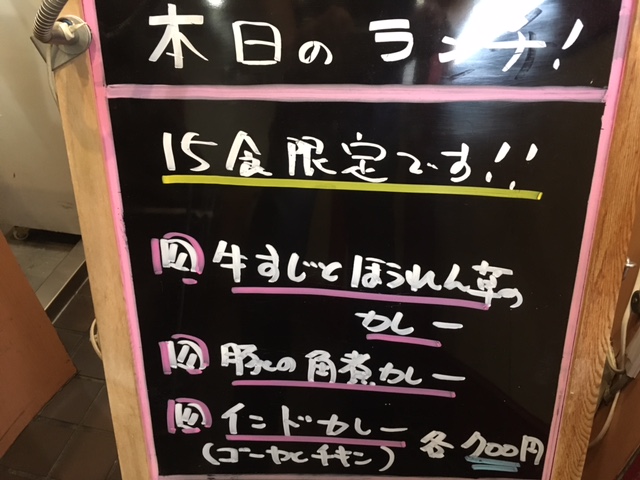 本日のランチ!
15食限定です!!
図 牛すじとほうれん草の
カレー
図 豚の角煮カレー
図 インドカレー
(ゴーヤとチキン) 各700円